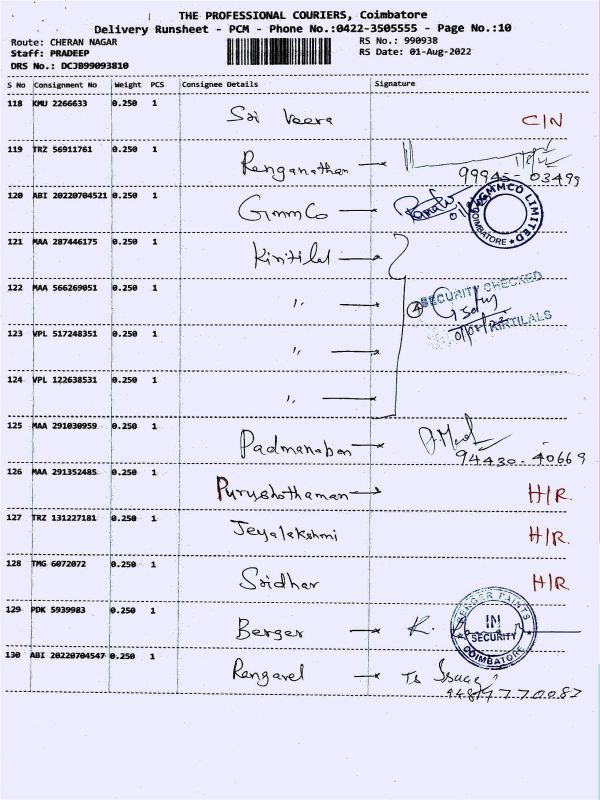 THE PROFESSIONAL COURIERS, Coimbatore
Delivery Runsheet - PCM - Phone No.:0422-3505555 - Page No.:10
Route: CHERAN NAGAR RS No.: 990938
Staff: PRADEEP RS Date: 01-Aug-2022
DRS No.: DCJB99093810
S No Consignment No Weight PCS Consignee Details Signature
118 KMU 2266633 0.250 1 Sai Veera C/N
119 TRZ 56911761 0.250 1 Renganathan
99945-03499
120 ABI 20220704521 0.250 1 GmmCo
GMMCO LIMITED COIMBATORE
121 MAA 287446175 0.250 1 Kirtilal
122 MAA 566269051 0.250 1 "
4 SECURITY CHECKED
KIRTILALS
123 VPL 517248351 0.250 1 "
124 VPL 122638531 0.250 1 "
125 MAA 291030959 0.250 1 Padmanaban
94430-40669
126 MAA 291352485 0.250 1 Purushothaman H/R
127 TRZ 131227181 0.250 1 Jeyalakshmi H/R
128 TMG 6072072 0.250 1 Sridhar H/R
129 PDK 5939983 0.250 1 Berger K.
BERGER PAINTS IN SECURITY COIMBATORE
130 ABI 20220704547 0.250 1 Rengavel Isaac